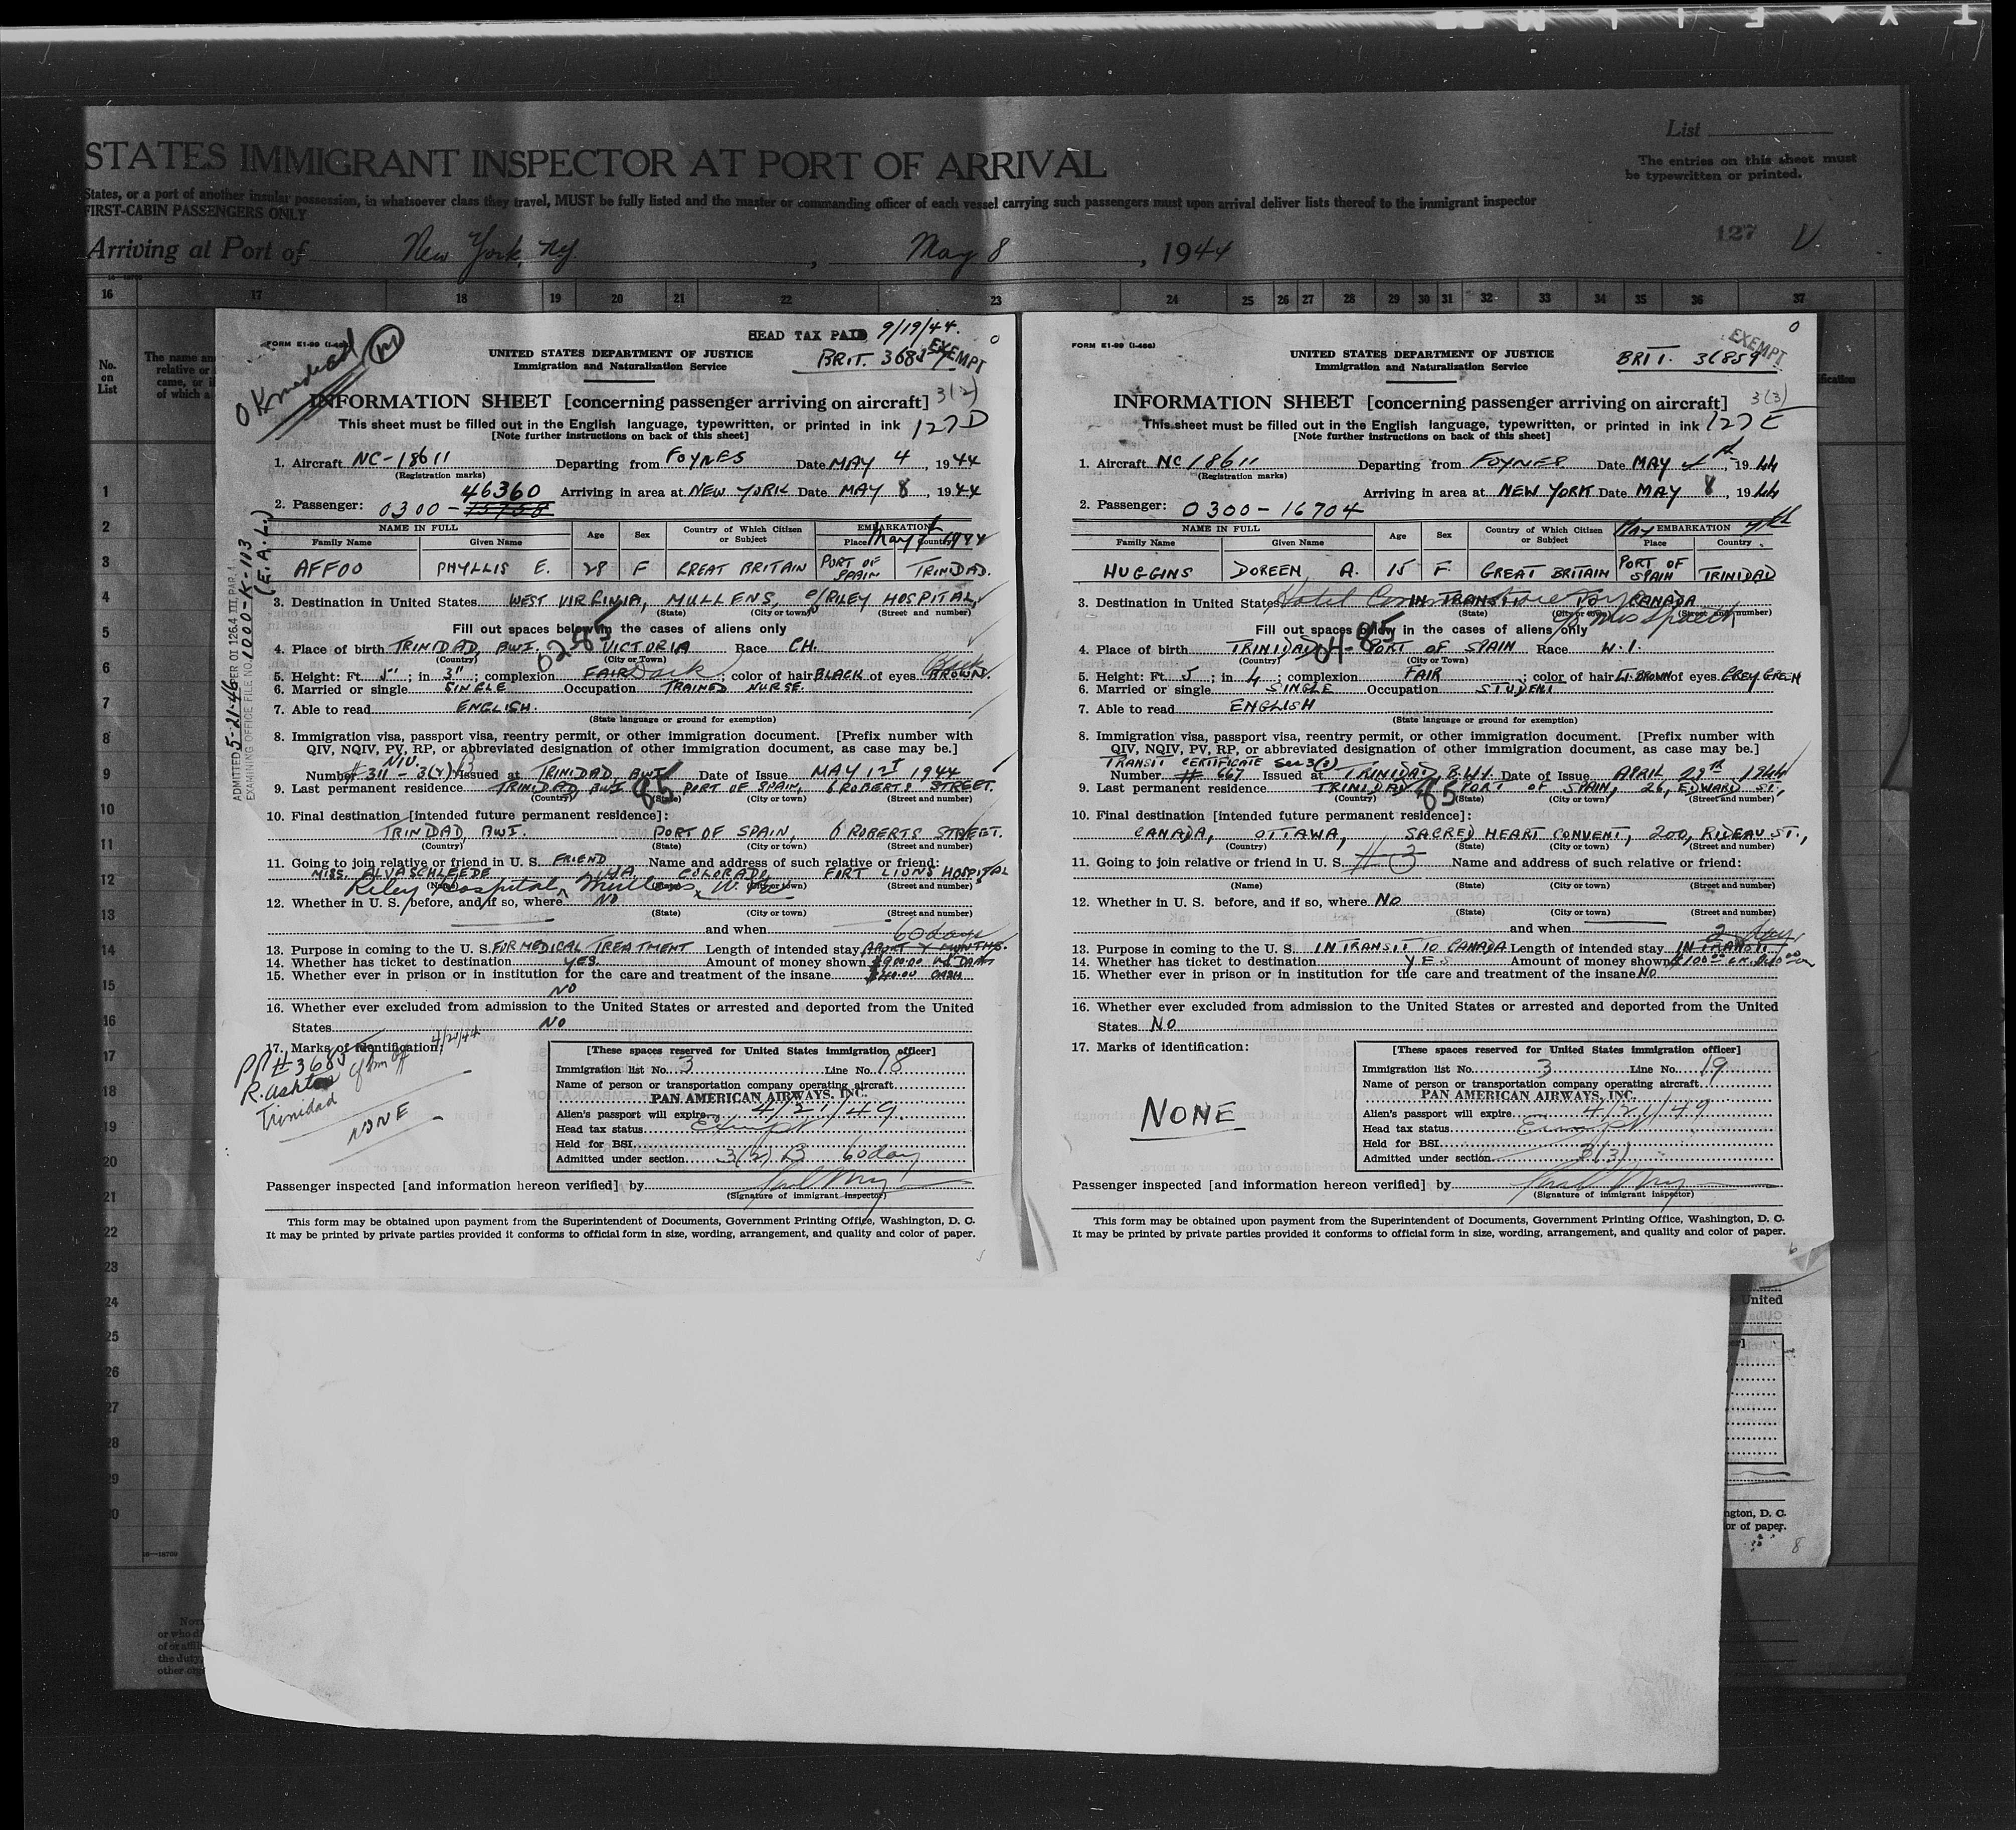 STATES IMMIGRANT INSPECTOR AT PORT OF ARRIVAL
List
The entries on this sheet must
be typewritten or printed.
States, or a port of another insular possession, in whatsoever class they travel, MUST be fully listed and the master or commanding officer of each vessel carrying such passengers must upon arrival deliver lists thereof to the immigrant inspector
FIRST-CABIN PASSENGERS ONLY
127 V
Arriving at Port of New York, NY. , May 8 , 1944
16 17 18 19 20 21 22 23 24 25 26 27 28 29 30 31 32 33 34 35 36 37
No. on List
OK medical
M
HEAD TAX PAID 9/19/44.
FORM E1-99 (I-466)
UNITED STATES DEPARTMENT OF JUSTICE
Immigration and Naturalization Service
BRIT. 3685
EXEMPT
INFORMATION SHEET [concerning passenger arriving on aircraft] 3(2)
This sheet must be filled out in the English language, typewritten, or printed in ink 127 D
[Note further instructions on back of this sheet]
1. Aircraft NC-18611 Departing from FOYNES Date MAY 4, 1944
(Registration marks)
46360 Arriving in area at NEW YORK Date MAY 8, 1944
2. Passenger: 0300-
NAME IN FULL Age Sex Country of Which Citizen or Subject EMBARKATION
Family Name Given Name Place Country
AFFOO PHYLLIS E. 28 F GREAT BRITAIN PORT OF SPAIN TRINIDAD.
3. Destination in United States WEST VIRGINIA, MULLENS, c/RILEY HOSPITAL,
(State) (City or town) (Street and number)
Fill out spaces below in the cases of aliens only
4. Place of birth TRINIDAD, BWI. VICTORIA Race CH.
(Country) (City or Town)
6285
5. Height: Ft. 5" ; in 3" ; complexion FAIR Dark ; color of hair BLACK of eyes BROWN.
6. Married or single SINGLE Occupation TRAINED NURSE.
7. Able to read ENGLISH.
(State language or ground for exemption)
8. Immigration visa, passport visa, reentry permit, or other immigration document. [Prefix number with
QIV, NQIV, PV, RP, or abbreviated designation of other immigration document, as case may be.]
NIV.
Number # 311 - 3(2)B Issued at TRINIDAD, BWI Date of Issue MAY 1ST 1944
9. Last permanent residence TRINIDAD, BWI. PORT OF SPAIN, 6 ROBERTS STREET.
85
(Country) (State) (City or town) (Street and number)
10. Final destination [intended future permanent residence]:
TRINIDAD, BWI. PORT OF SPAIN, 6 ROBERTS STREET.
(Country) (State) (City or town) (Street and number)
11. Going to join relative or friend in U. S. FRIEND Name and address of such relative or friend:
MISS. ALVA SCHLEEDE COLORADO, FORT LIONS HOSPITAL
Riley Hospital, Mullens, W. Va
(Name) (State) (City or town) (Street and number)
12. Whether in U. S. before, and if so, where NO
(State) (City or town) (Street and number)
and when
60 days
13. Purpose in coming to the U. S. FOR MEDICAL TREATMENT Length of intended stay
14. Whether has ticket to destination YES. Amount of money shown
15. Whether ever in prison or in institution for the care and treatment of the insane
NO
16. Whether ever excluded from admission to the United States or arrested and deported from the United
States NO
17. Marks of identification: 4/21/44
PP # 3685
R. Ashton
Trinidad
NONE
[These spaces reserved for United States immigration officer]
Immigration list No. 3 Line No. 18
Name of person or transportation company operating aircraft
PAN AMERICAN AIRWAYS, INC.
Alien's passport will expire 4/21/49
Head tax status Exempt
Held for BSI
Admitted under section 3(2) B 60 day
Passenger inspected [and information hereon verified] by
(Signature of immigrant inspector)
This form may be obtained upon payment from the Superintendent of Documents, Government Printing Office, Washington, D. C.
It may be printed by private parties provided it conforms to official form in size, wording, arrangement, and quality and color of paper.
ADMITTED 5-21-46 PER OI 126.4 III PAR. 1
EXAMINING OFFICE FILE NO. 1000-K-113
(E.A.L.)
FORM E1-99 (I-466)
UNITED STATES DEPARTMENT OF JUSTICE
Immigration and Naturalization Service
BRIT. 36859
EXEMPT
INFORMATION SHEET [concerning passenger arriving on aircraft] 3(3)
This sheet must be filled out in the English language, typewritten, or printed in ink 127 E
[Note further instructions on back of this sheet]
1. Aircraft NC 18611 Departing from FOYNES Date MAY 4th, 1944
(Registration marks)
Arriving in area at NEW YORK Date MAY 8, 1944
2. Passenger: 0300-16704
NAME IN FULL Age Sex Country of Which Citizen or Subject May EMBARKATION 7th
Family Name Given Name Place Country
HUGGINS DOREEN A. 15 F. GREAT BRITAIN PORT OF SPAIN TRINIDAD
3. Destination in United States Hotel IN TRANSIT TO CANADA
(State) (City or town) (Street and number)
Fill out spaces below in the cases of aliens only
4. Place of birth TRINIDAD PORT OF SPAIN Race W.I.
(Country) (City or Town)
5. Height: Ft. 5 ; in 4 ; complexion FAIR ; color of hair LT. BROWN of eyes GREY GREEN
6. Married or single SINGLE Occupation STUDENT
7. Able to read ENGLISH
(State language or ground for exemption)
8. Immigration visa, passport visa, reentry permit, or other immigration document. [Prefix number with
QIV, NQIV, PV, RP, or abbreviated designation of other immigration document, as case may be.]
TRANSIT CERTIFICATE Sec 3(3)
Number # 667 Issued at TRINIDAD B.W.I. Date of Issue APRIL 29th 1944
9. Last permanent residence TRINIDAD PORT OF SPAIN, 26, EDWARD ST.,
85
(Country) (State) (City or town) (Street and number)
10. Final destination [intended future permanent residence]:
CANADA, OTTAWA, SACRED HEART CONVENT, 200, RIDEAU ST.,
(Country) (State) (City or town) (Street and number)
11. Going to join relative or friend in U. S. # 3 Name and address of such relative or friend:
(Name) (State) (City or town) (Street and number)
12. Whether in U. S. before, and if so, where NO
(State) (City or town) (Street and number)
and when
13. Purpose in coming to the U. S. IN TRANSIT TO CANADA Length of intended stay IN TRANSIT
14. Whether has ticket to destination YES Amount of money shown
15. Whether ever in prison or in institution for the care and treatment of the insane NO
16. Whether ever excluded from admission to the United States or arrested and deported from the United
States NO
17. Marks of identification:
NONE
[These spaces reserved for United States immigration officer]
Immigration list No. 3 Line No. 19
Name of person or transportation company operating aircraft
PAN AMERICAN AIRWAYS, INC.
Alien's passport will expire 4/21/49
Head tax status Exempt
Held for BSI
Admitted under section 3(3)
Passenger inspected [and information hereon verified] by
(Signature of immigrant inspector)
This form may be obtained upon payment from the Superintendent of Documents, Government Printing Office, Washington, D. C.
It may be printed by private parties provided it conforms to official form in size, wording, arrangement, and quality and color of paper.